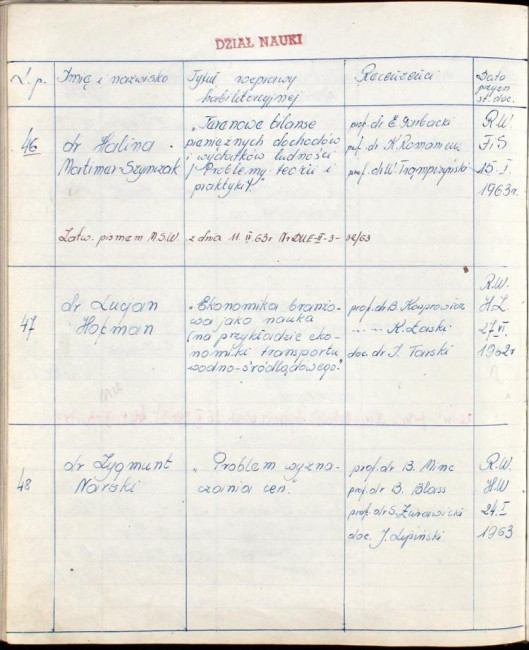 DZIAŁ NAUKI
L. p.
Imię i nazwisko
Tytuł rozprawy
habilitacyjnej
Recenzenci
Data
przyzn
st. doc.
46
dr Halina
Mortimer-Szymczak
"Terenowe bilanse
pieniężnych dochodów
i wydatków ludności
/ Problemy teorii i
praktyki/."
prof. dr E. Garbacki
prof. dr K. Romaniuk
prof. dr W. Trąmpczyński
R.W.
FiS
15-I.
1963r.
Zatw. pismem M.S.W. z dnia 11. II. 63r Nr DUE-II-3- 32/63
47
dr Lucjan
Hofman
"Ekonomika branżo-
wa jako nauka
(na przykładzie eko-
nomiki transportu
wodno-śródlądowego."
prof. dr B. Kasprowicz
" - " - K. Łaski
doc. dr I. Tarski
R.W.
H.L.
27.VI.
1962r
48
dr Zygmunt
Narski
"Problem wyzna-
czania cen.
prof. dr B. Minc
prof. dr B. Blass
prof. dr S. Żurawicki
doc. J. Lipiński
R.W.
H.W
24.I
1963